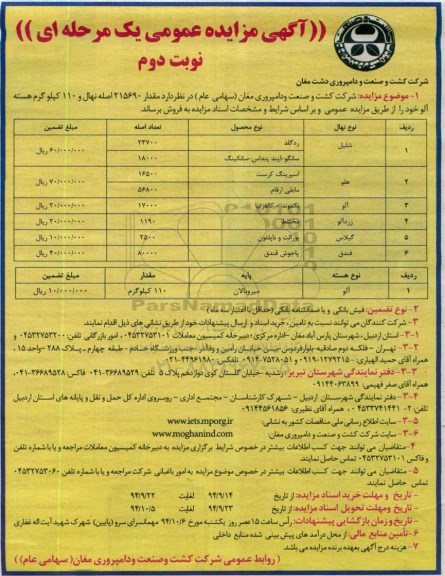 ((آگهی مزایده عمومی یک مرحله ای))
نوبت دوم
شرکت کشت و صنعت و دامپروری دشت مغان
۱-موضوع مزایده: شرکت کشت و صنعت ودامپروری مغان (سهامی عام) در نظر دارد مقدار ۲۱۵۶۹۰ اصله نهال و ۱۱۰ کیلو گرم هسته
آلو خود را از طریق مزایده عمومی و بر اساس شرایط و مشخصات اسناد مزایده به فروش برساند.
ردیف نوع نهال نوع محصول تعداد اصله مبلغ تضمین
۱ شلیل ردگلد ۲۳۷۰۰ ۶۰/۰۰۰/۰۰۰ ریال
سانگلو-ایند پنداس-سانکینگ ۱۸۰۰۰
۲ هلو اسپرینگ کرست ۱۶۵۰۰ ۷۰/۰۰۰/۰۰۰ ریال
مابقی ارقام ۵۶۸۰۰
۳ آلو ۱۷۰۰۰ ۲۰/۰۰۰/۰۰۰ ریال
۴ زردآلو مختلط ۱۱۹۰ ۲۰/۰۰۰/۰۰۰ ریال
۵ گیلاس ۲۵۰۰ ۱۰/۰۰۰/۰۰۰ ریال
۶ فندق پاجوش فندق ۸۰۰۰۰ ۴۰/۰۰۰/۰۰۰ ریال
ردیف نوع هسته پایه مقدار مبلغ تضمین
۱ آلو میروبالان ۱۱۰ کیلوگرم ۱۰/۰۰۰/۰۰۰ ریال
۲- نوع تضمین: فیش بانکی و یا ضمانتنامه بانکی (حداقل با اعتبار سه ماه)
۳- شرکت کنندگان می توانند نسبت به تامین، خرید اسناد و ارسال پیشنهادات خود از طریق نشانی های ذیل اقدام نمایند.
۳-۱- استان اردبیل، شهرستان پارس آباد مغان-اداره مرکزی؛ دبیرخانه کمیسیون معاملات ۰۴۵۳۲۷۵۳۱۰۱، امور بازرگانی تلفن: ۰۴۵۳۲۷۵۳۲۰۰ و
۳-۲- تهران - فلکه دوم صادقیه-بلوار فردوس -بین خیابان رامین و وفاآذر -جنب ورزشگاه خادم - طبقه چهارم - پلاک ۲۸۸ - واحد ۱۵،
همراه آقای حمید الهیاری
۳-۳- دفتر نمایندگی شهرستان تبریز: رشدیه -خیابان گلستان کوی دوازدهم پلاک ۵ تلفن: ۳۶۶۸۹۵۲۹-۰۴۱ فاکس ۳۶۶۸۹۵۲۸-۰۴۱
همراه آقای صفر فهیمی: ۰۹۱۴۴۰۶۳۸۹۹
۳-۴- دفتر نمایندگی شهرستان اردبیل - شهرک کارشناسان - مجتمع اداری - روبروی اداره کل حمل و نقل و پایانه های استان اردبیل
تلفن: ۲- ۰۴۵۳۳۷۴۱۴۴۱ ، همراه آقای نظیری: ۰۹۱۴۴۵۶۱۸۵۶
۳-۵- سایت اطلاع رسانی ملی مناقصات کشور به نشانی: www.iets.mporg.ir
۳-۶- سایت شرکت کشت و صنعت و دامپروری مغان: www.moghanind.com
۴-متقاضیان می توانند جهت کسب اطلاعات بیشتر در خصوص شرایط برگزاری مزایده به دبیرخانه کمیسیون معاملات مراجعه و یا با شماره تلفن
و فاکس ۰۴۵۳۲۷۵۳۱۰۱ تماس حاصل نمایند.
۵- متقاضیان می توانند جهت کسب اطلاعات بیشتر در خصوص موضوع مزایده به امور باغبانی شرکت مراجعه و یا با شماره تلفن ۰۴۵۳۲۷۵۳۰۶۰
تماس حاصل نمایند.
- تاریخ و مهلت خرید اسناد مزایده: از تاریخ ۹۴/۹/۱۴ لغایت ۹۴/۹/۲۲
- تاریخ ومهلت تحویل اسناد مزایده: از تاریخ ۹۴/۹/۲۳ لغایت ۹۴/۱۰/۵
- تاریخ و زمان بازگشایی پیشنهادات: رأس ساعت ۱۵ عصر روز یکشنبه مورخ ۹۴/۱۰/۶ مهمانسرای سرو (پایین) شهرک شهید آیت اله غفاری
۶-تأمین منابع مالی: از محل درآمد های پیش بینی شده منابع داخلی
۷- هزینه درج آگهی بعهده برنده مزایده می باشد.
(روابط عمومی شرکت کشت وصنعت ودامپروری مغان( سهامی عام))